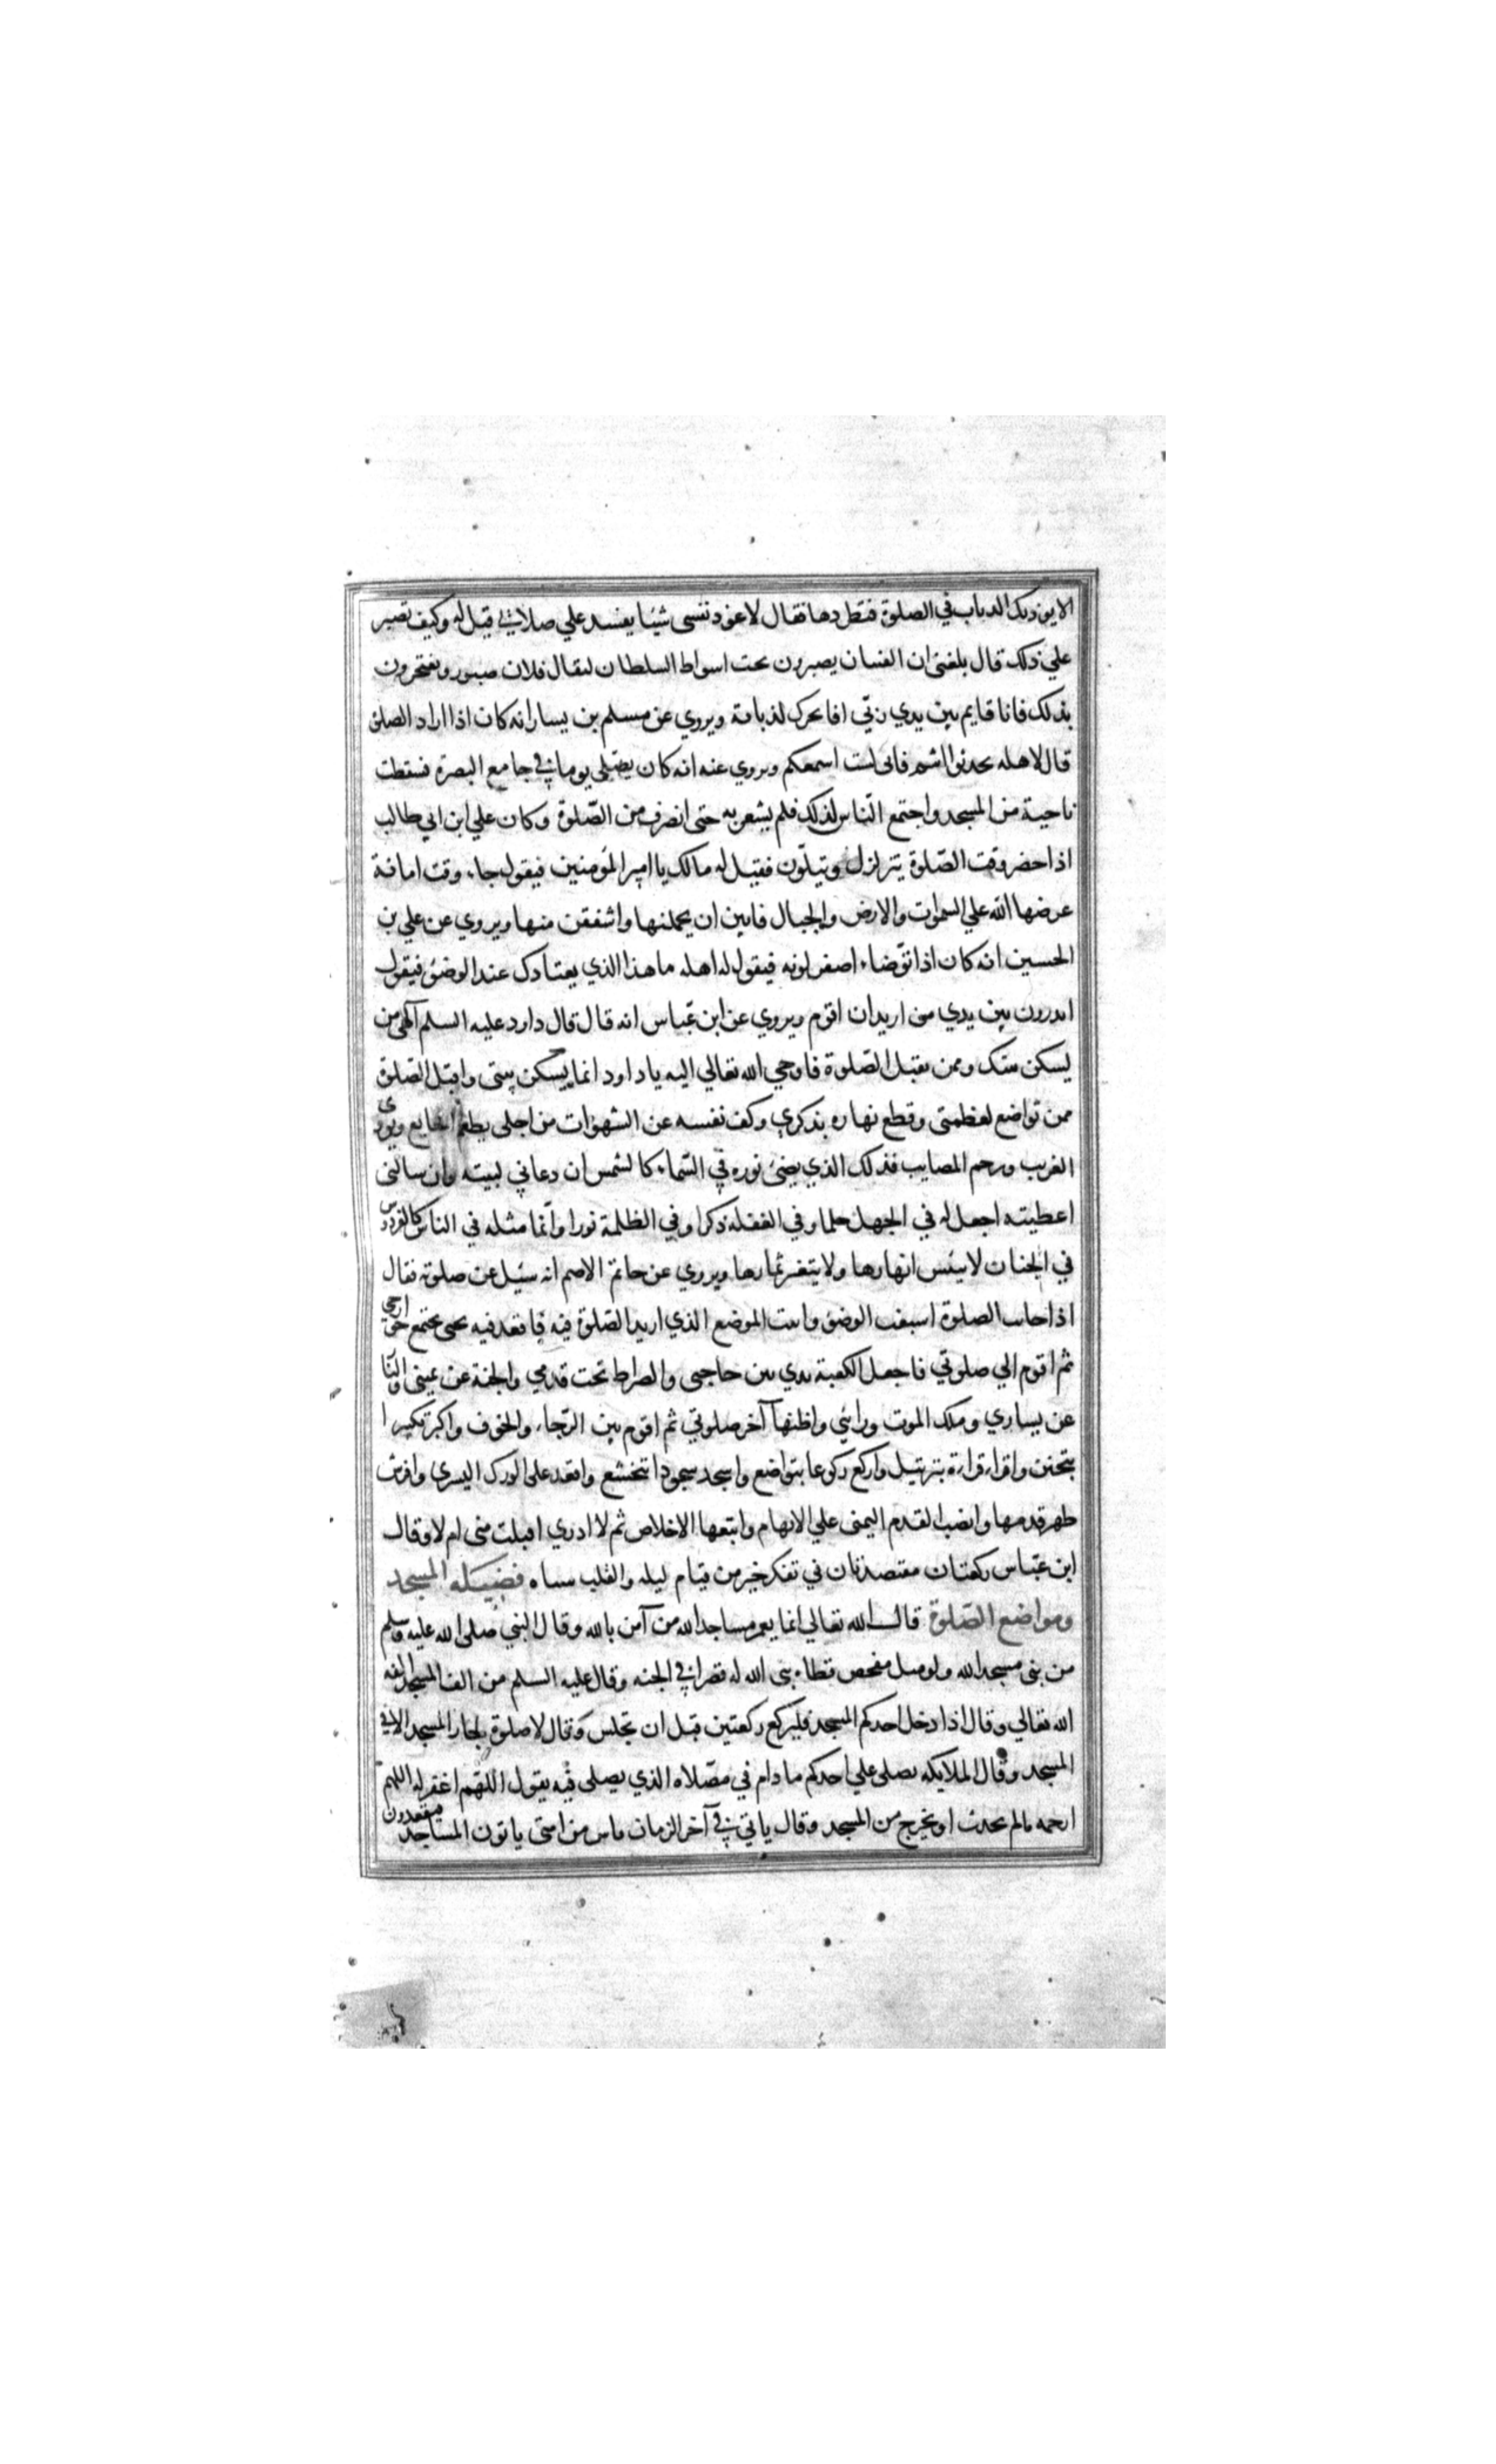 الا يوذيك الذباب في الصلوة فتطردها فقال لا اعود نفسى شيئا يفسد علي صلاتي قيل له وكيف تصبر
علي ذلك قال بلغنى ان الفساق يصبرون تحت اسواط السلطان ليقال فلان صبور ويفتخرون
بذلك فانا قايم بين يدي ربّي افاتحرك لذبابة ويروي عن مسلم بن يسار انه كان اذا اراد الصلوة
قال لاهله تحدثوا انتم فانى لست اسمعكم ويروي عنه انه كان يصلى يوما في جامع البصرة فسقطت
ناحية من المسجد واجتمع الناس لذلك فلم يشعر به حتى انصرف من الصّلوة وكان علي ابن ابي طالب
اذا حضر وقت الصّلوة يتزلزل ويتلّون فقيل له مالك يا امير المؤمنين فيقول جاء وقت امانة
عرضها الله علي السموات والارض والجبال فابين ان يحملنها واشفقن منها ويروي عن علي بن
الحسين انه كان اذا توّضاء اصفر لونه فيقول له اهله ما هذا الذي يعتادك عند الوضؤ فيقول
اتدرون بين يدي من اريد ان اقوم ويروي عن ابن عبّاس انه قال قال داود عليه السلم آلهي من
يسكن بيتك وممن تقبل الصّلوة فاوحي الله تعالي اليه يا داود انما يسكن بيتى واقبل الصّلوة
ممن تواضع لعظمتى وقطع نهاره بذكري وكف نفسه عن الشهوات من اجلى يطعم الجايع ويووى
الغريب ويرحم المصايب فذلك الذي يضئ نوره في السّماء كالشمس ان دعاني لبيته وان سالنى
اعطيته اجعل له في الجهل حلما وفي الغفله ذكرا وفي الظلمة نورا وانّما مثله في الناس كالفردوس
في الجنان لا ييبس انهارها ولا يتغير ثمارها ويروي عن حاتم الاصم انه سئيل عن صلوته فقال
اذا حانت الصلوة اسبغت الوضؤ واتيت الموضع الذي اريد الصّلوة فيه فاقعد فيه حتى يجتمع جوارحي
ثم اقوم الي صلوتي فاجعل الكعبة بين حاجبى والصراط تحت قدمي والجنة عن يمينى والنّار
عن يساري وملك الموت ورائي واظنها آخر صلوتي ثم اقوم بين الرّجاء والخوف واكبر تكبيرا
بتحنن واقراء قراءة بترتيل واركع ركوعا بتواضع واسجد سجودا بتخشع واقعد على الورك اليسرى وافرش
ظهر قدمها وانصب القدم اليمنى علي الابهام واتبعها الاخلاص ثم لا ادري اقبلت منى ام لا وقال
ابن عبّاس ركعتان مقتصدتان في تفكر خير من قيام ليله والقلب ساه فضيله المسجد
ومواضع الصّلوة قال الله تعالي انما يعمر مساجد الله من آمن بالله وقال النبي صلى الله عليه وسلم
من بنى مسجد الله ولو مثل مفحص قطاه بنى الله له قصرا في الجنه وقال عليه السلم من الف المسجد الفه
الله تعالي وقال اذا دخل احدكم المسجد فليركع ركعتين قبل ان تجلس وقال لا صلوة لجار المسجد الا في
المسجد وقال الملايكه يصلى علي احدكم ما دام في مصّلاه الذي يصلى فيه يقول اللّهم اغفر له اللهم
ارحمه مالم يحدث او يخرج من المسجد وقال ياتي في آخر الزمان ناس من امتى ياتون المساجد فيقعدون